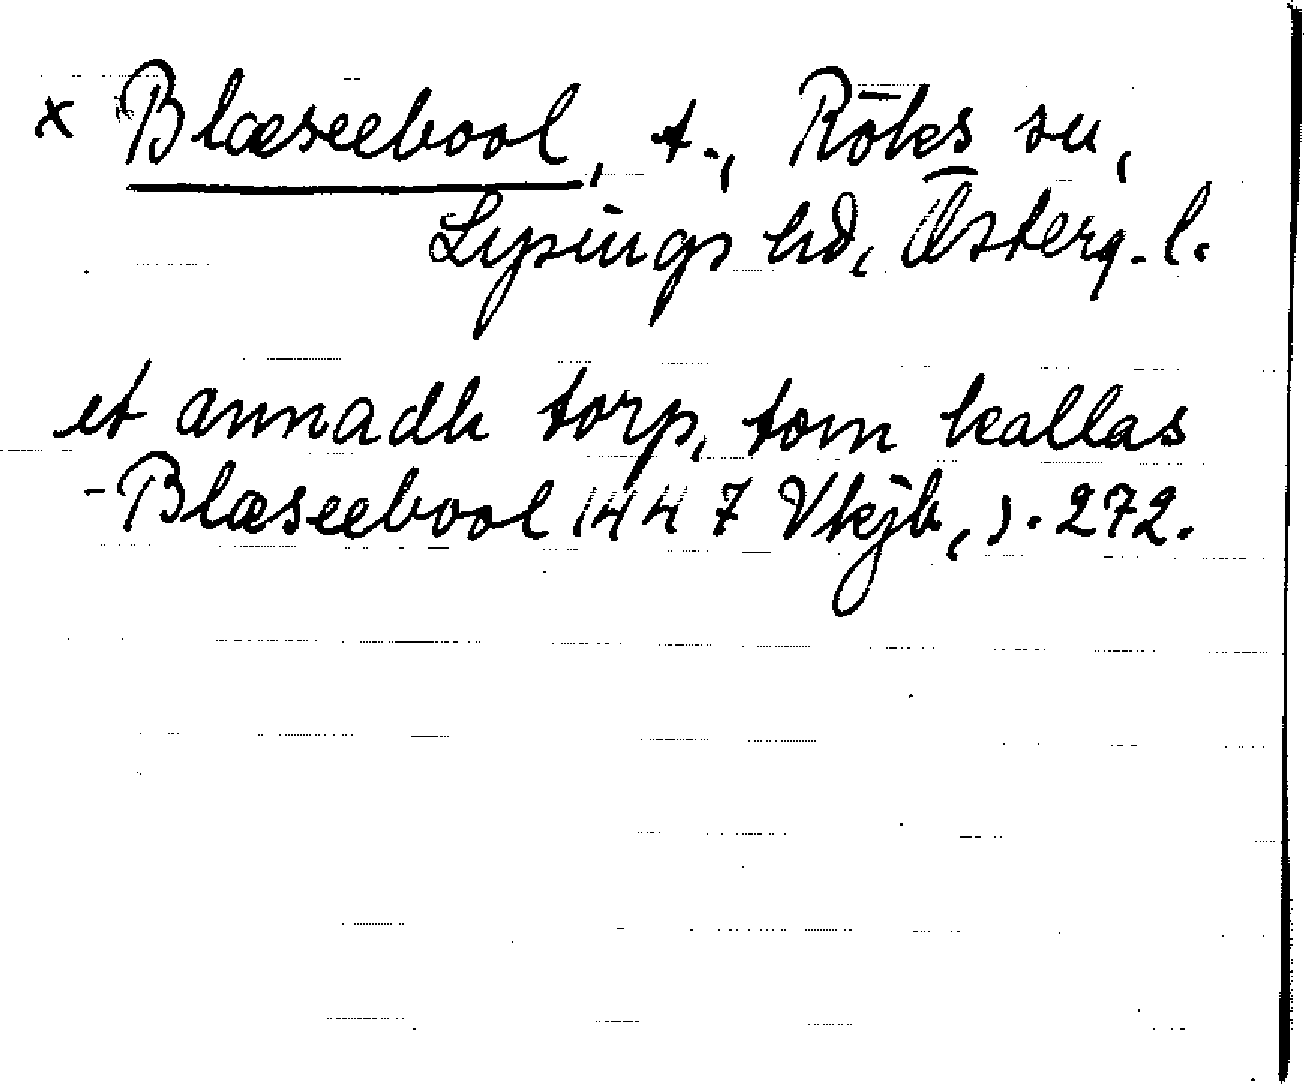 x Blæseebool, t., Röks sn,
Lysings hd, Österg. l.
et annadh torp, som kallas
Blæseebool 1447 Vkjb, s. 272.